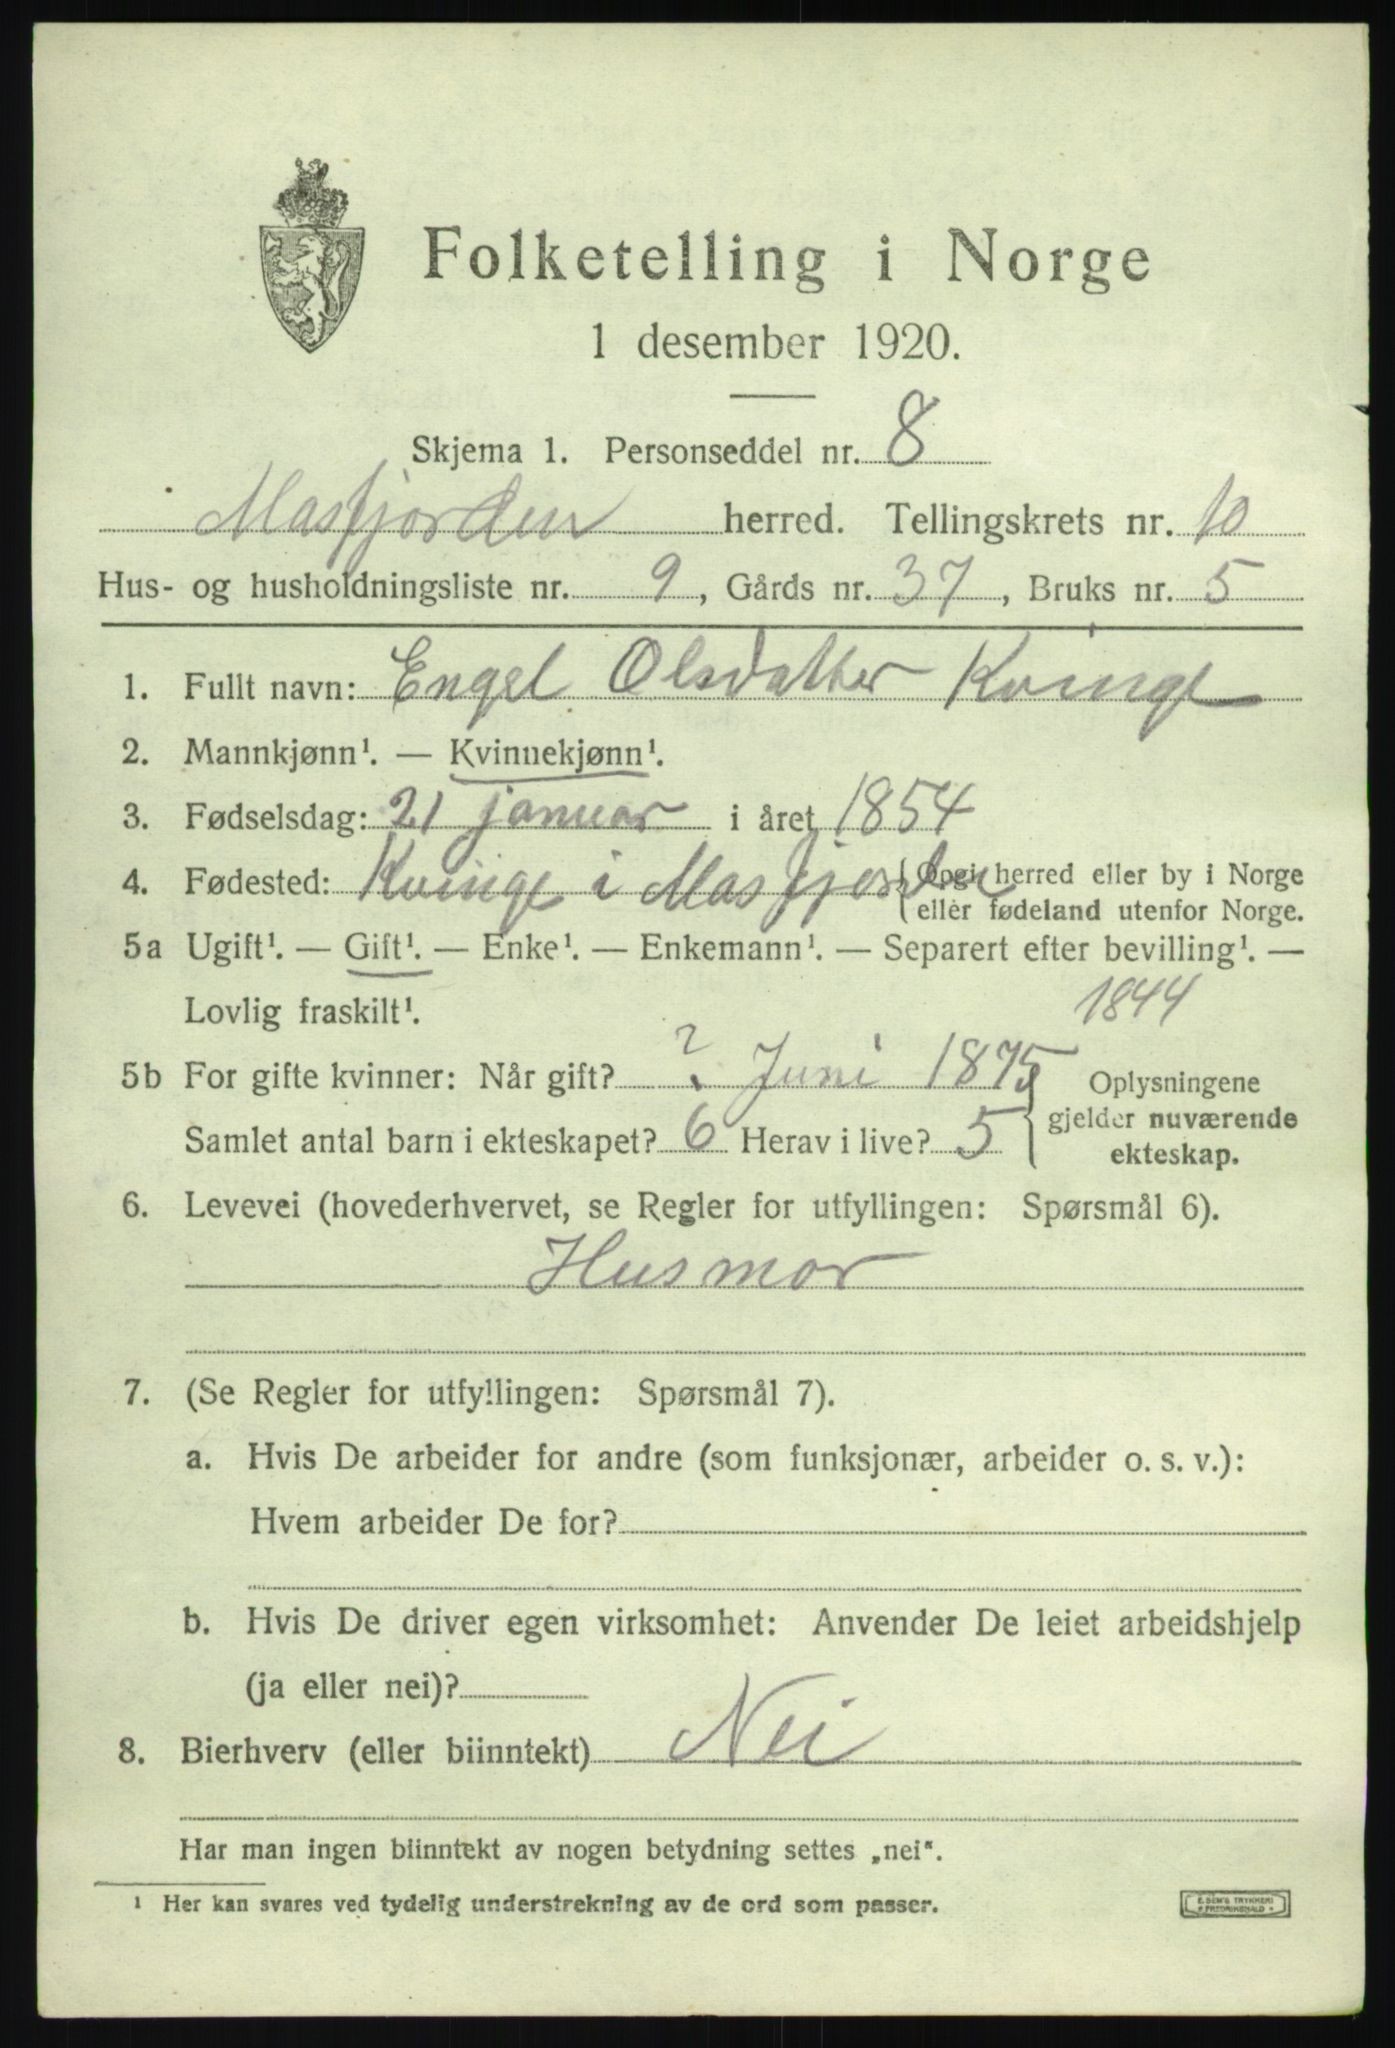 Folketelling i Norge
1 desember 1920.
Skjema 1. Personseddel nr. 8
Masfjorden herred. Tellingskrets nr. 10
Hus- og husholdningsliste nr. 9, Gårds nr. 37, Bruks nr. 5
1. Fullt navn: Engel Olsdatter Kvinge
2. Mannkjønn¹. — Kvinnekjønn¹.
3. Fødselsdag: 21 januar i året 1854
4. Fødested: Kvinge i Masfjorden { Opgi herred eller by i Norge
eller fødeland utenfor Norge.
5a Ugift¹. — Gift¹. — Enke¹. — Enkemann¹. — Separert efter bevilling¹. —
Lovlig fraskilt¹.
1844
5b For gifte kvinner: Når gift? ? Juni 1875
Samlet antal barn i ekteskapet? 6 Herav i live? 5
} Oplysningene
gjelder nuværende
ekteskap.
6. Levevei (hovederhvervet, se Regler for utfyllingen: Spørsmål 6).
Husmor
7. (Se Regler for utfyllingen: Spørsmål 7).
a. Hvis De arbeider for andre (som funksjonær, arbeider o. s. v.):
Hvem arbeider De for?
b. Hvis De driver egen virksomhet: Anvender De leiet arbeidshjelp
(ja eller nei)?
8. Bierhverv (eller biinntekt) Nei
Har man ingen biinntekt av nogen betydning settes „nei“.
¹ Her kan svares ved tydelig understrekning av de ord som passer.
E. SEM'S TRYKKERI
FREDRIKSHALD